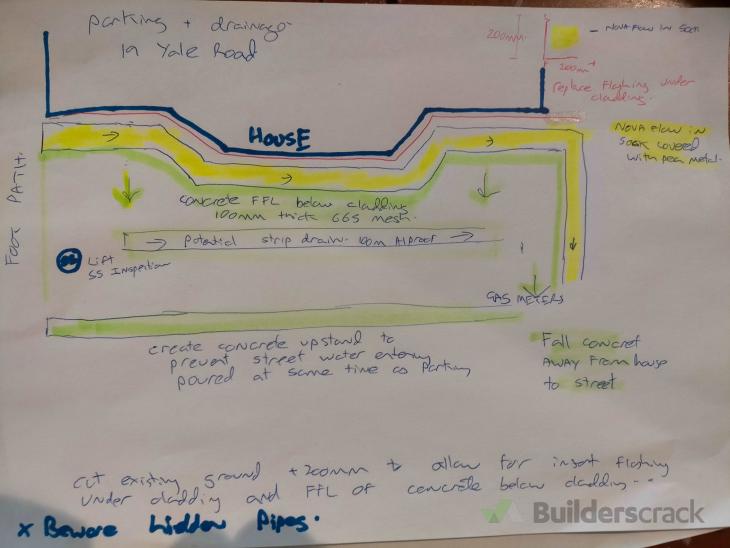 parking + drainage.
19 Yale Road
200mm
- Nova Flow in Sock
200mm
replace flashing under
cladding.
HOUSE
Nova Flow in
Sock covered
with pea metal.
FOOT PATH.
concrete FFL below cladding
100mm thick 665 mesh.
Potential strip drain. 100m Alproof
Lift
SS Inspection
GAS METERS
create concrete upstand to
prevent street water entering
poured at same time as parking
Fall concret
AWAY From house
to street
cut existing ground +200mm to allow for insert flashing
under cladding and FFL of concrete below cladding...
x Beware hidden Pipes.
Builderscrack